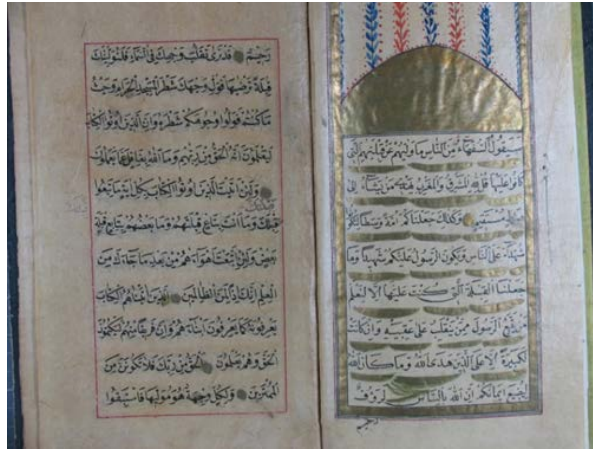 سيقول السفهاء من الناس ما وليهم عن قبلتهم التي
كانوا عليها قل لله المشرق والمغرب يهدي من يشاء الى
صراط مستقيم وكذلك جعلناكم امة وسطا لتكونوا
شهداء على الناس ويكون الرسول عليكم شهيدا وما
جعلنا القبلة التي كنت عليها الا لنعلم
من يتبع الرسول ممن ينقلب على عقبيه وان كانت
لكبيرة الا على الذين هدى الله وما كان الله
ليضيع ايمانكم ان الله بالناس لرؤف
رحيم
رحيم قد نرى تقلب وجهك في السماء فلنولينك
قبلة ترضيها فول وجهك شطر المسجد الحرام وحيث
ما كنتم فولوا وجوهكم شطره وان الذين اوتوا الكتاب
ليعلمون انه الحق من ربهم وما الله بغافل عما يعملون
ولئن اتيت الذين اوتوا الكتاب بكل اية ما تبعوا
قبلتك وما انت بتابع قبلتهم وما بعضهم بتابع قبلة
بعض ولئن اتبعت اهواءهم من بعد ما جاءك من
العلم انك اذا لمن الظالمين الذين اتيناهم الكتاب
يعرفونه كما يعرفون ابناءهم وان فريقا منهم ليكتمون
الحق وهم يعلمون الحق من ربك فلا تكونن من
الممترين ولكل وجهة هو موليها فاستبقوا